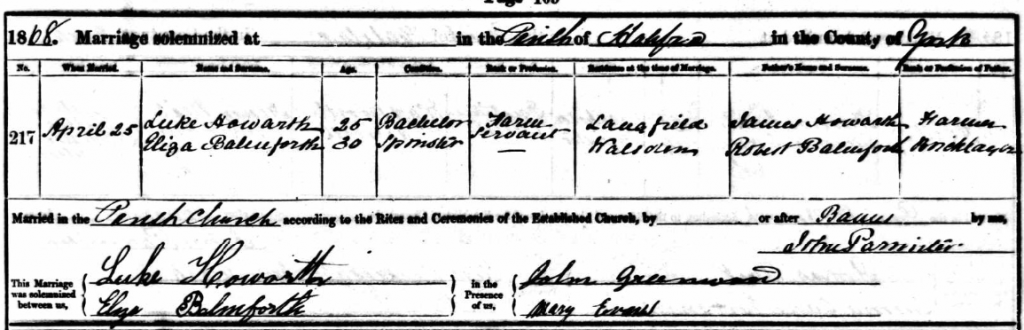 Page 109
1868. Marriage solemnized at in the Parish of Halifax in the County of York
No. When Married. Name and Surname. Age. Condition. Rank or Profession. Residence at the time of Marriage. Father's Name and Surname. Rank or Profession of Father.
217 April 25 Luke Howarth 25 Bachelor Farm Langfield James Howarth Farmer
Eliza Balmforth 30 Spinster Servant Walsden Robert Balmforth Bricklayer
Married in the Parish Church according to the Rites and Ceremonies of the Established Church, by or after Banns by me,
John
This Marriage was solemnized between us, Luke Howarth in the Presence of us, John Greenwood
Eliza Balmforth Mary Evans